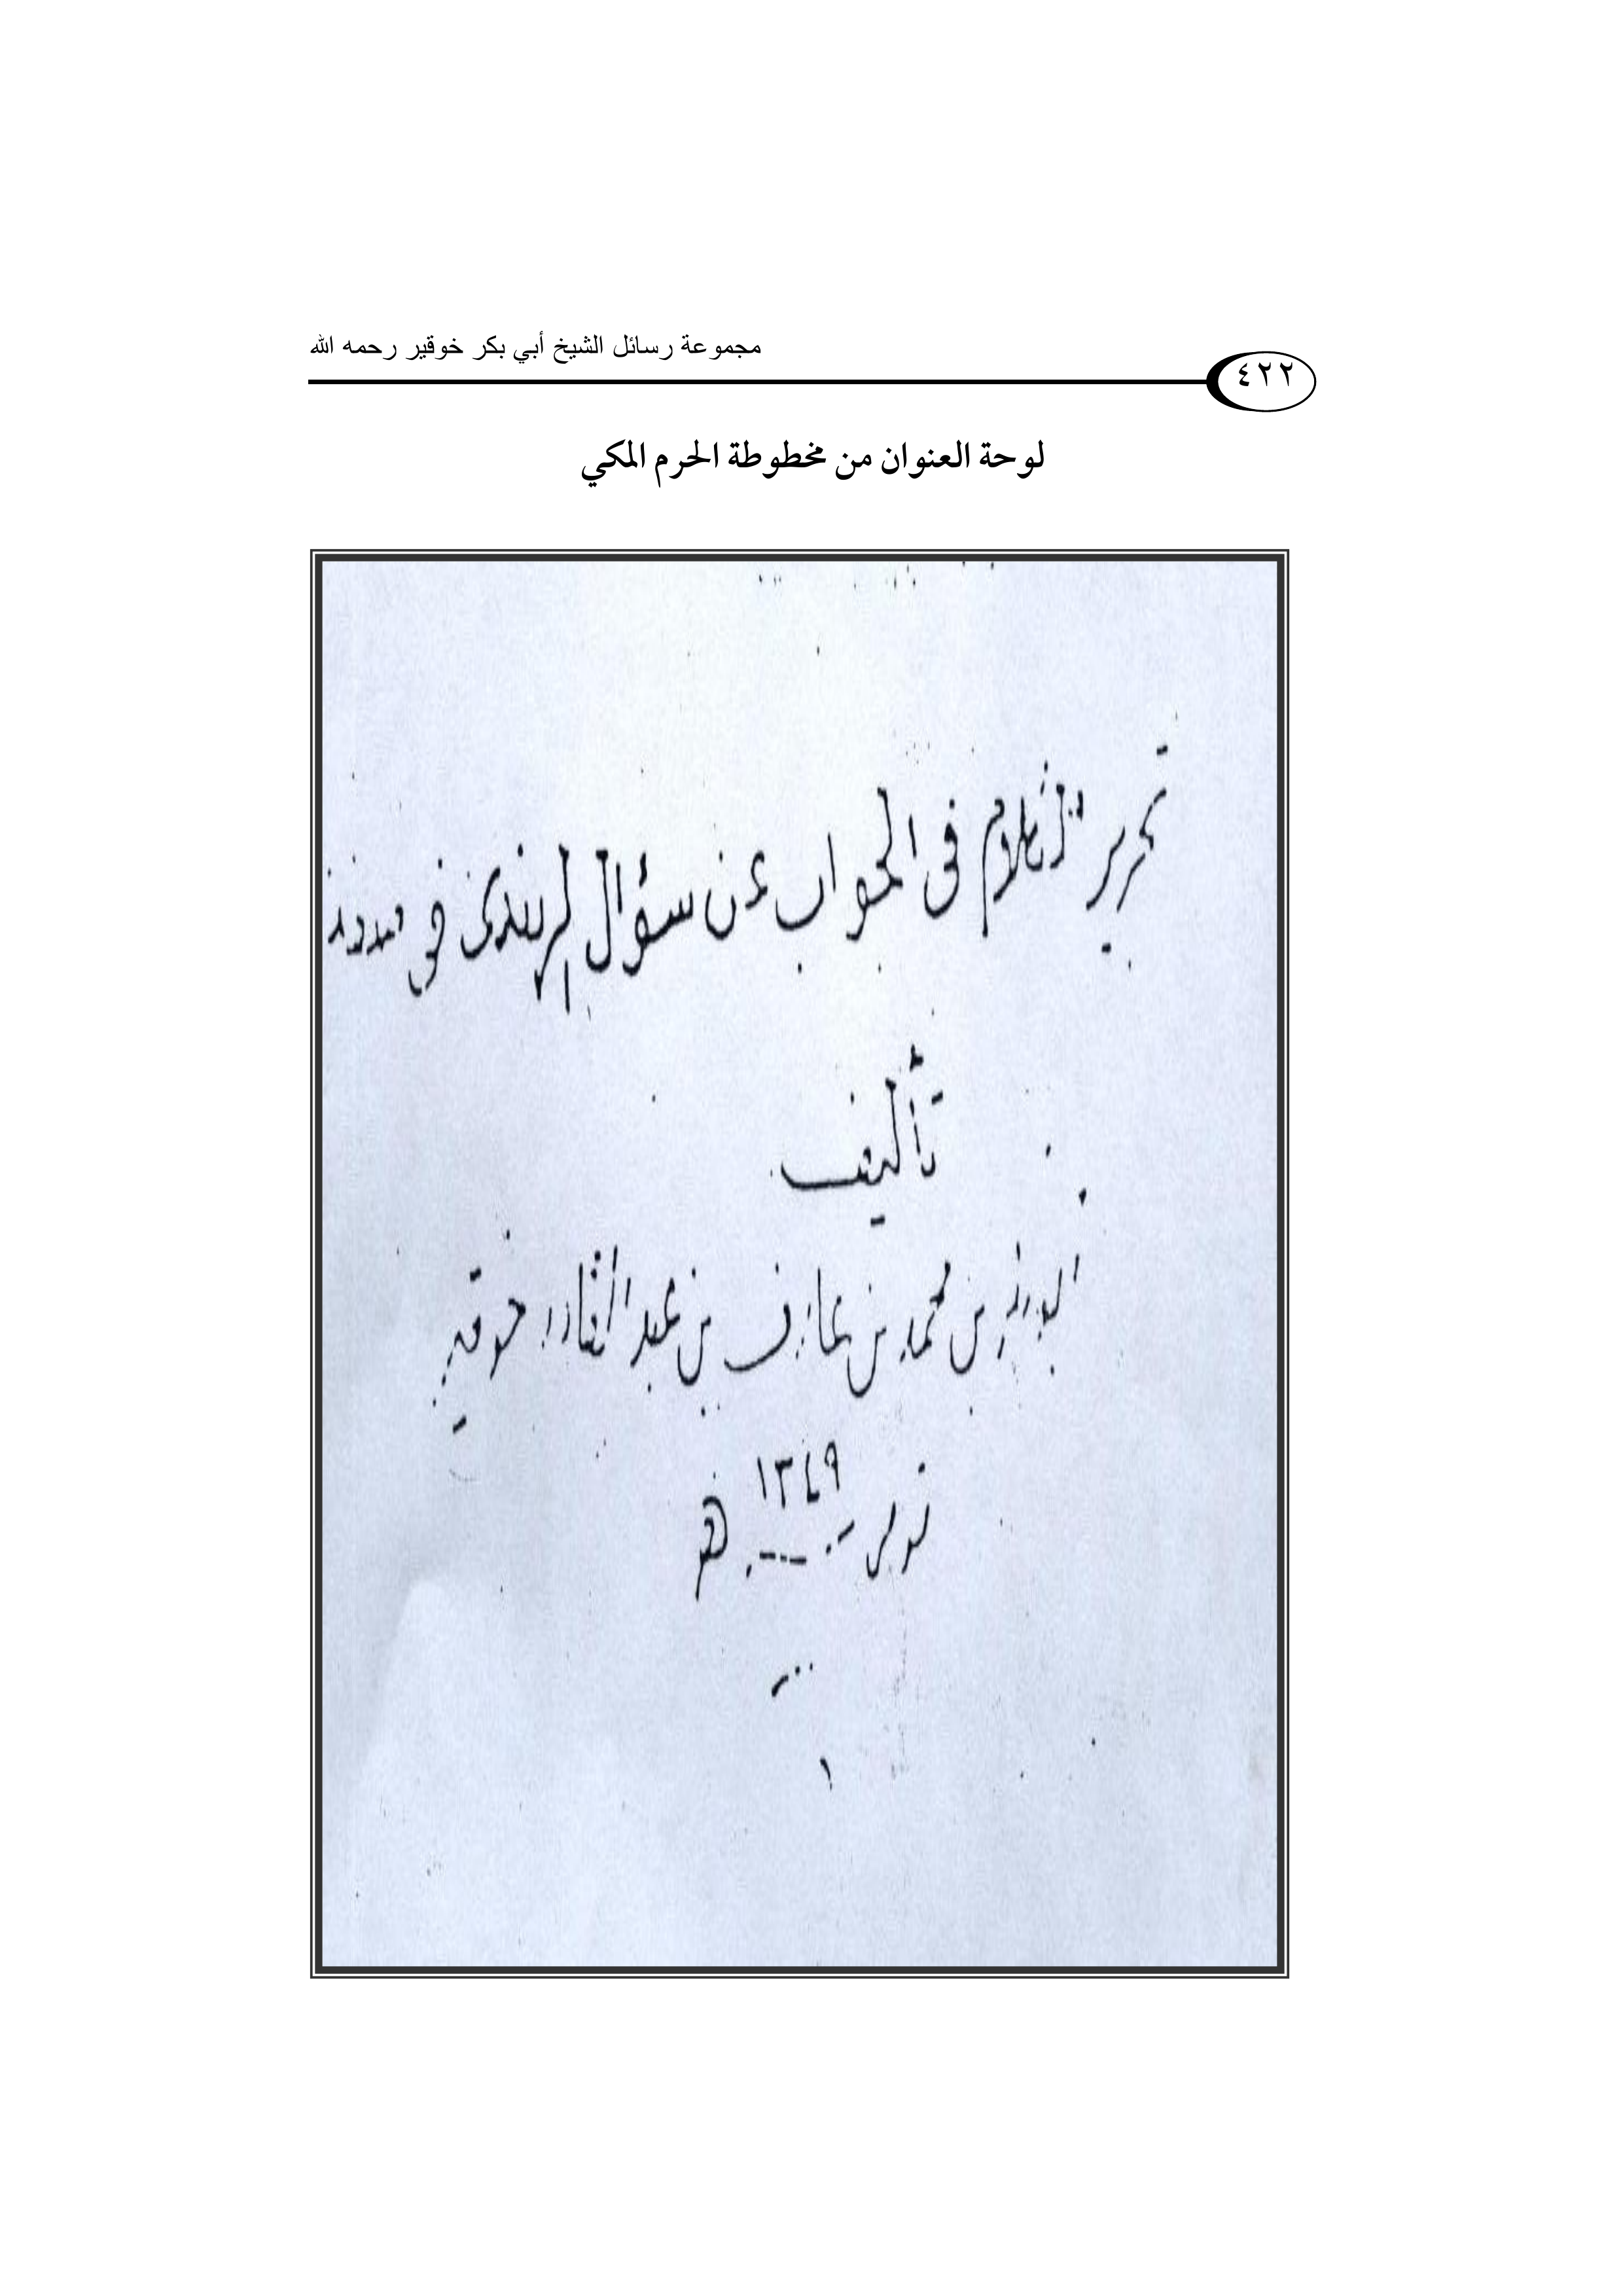 مجموعة رسائل الشيخ أبي بكر خوقير رحمه الله
٤٢٢
لوحة العنوان من مخطوطة الحرم المكي
تحرير الكلام في الجواب عن سؤال الهندي في
تأليف
ابو بكر بن محمد بن عارف بن عبد القادر خوقير
١٣٤٩
هـ